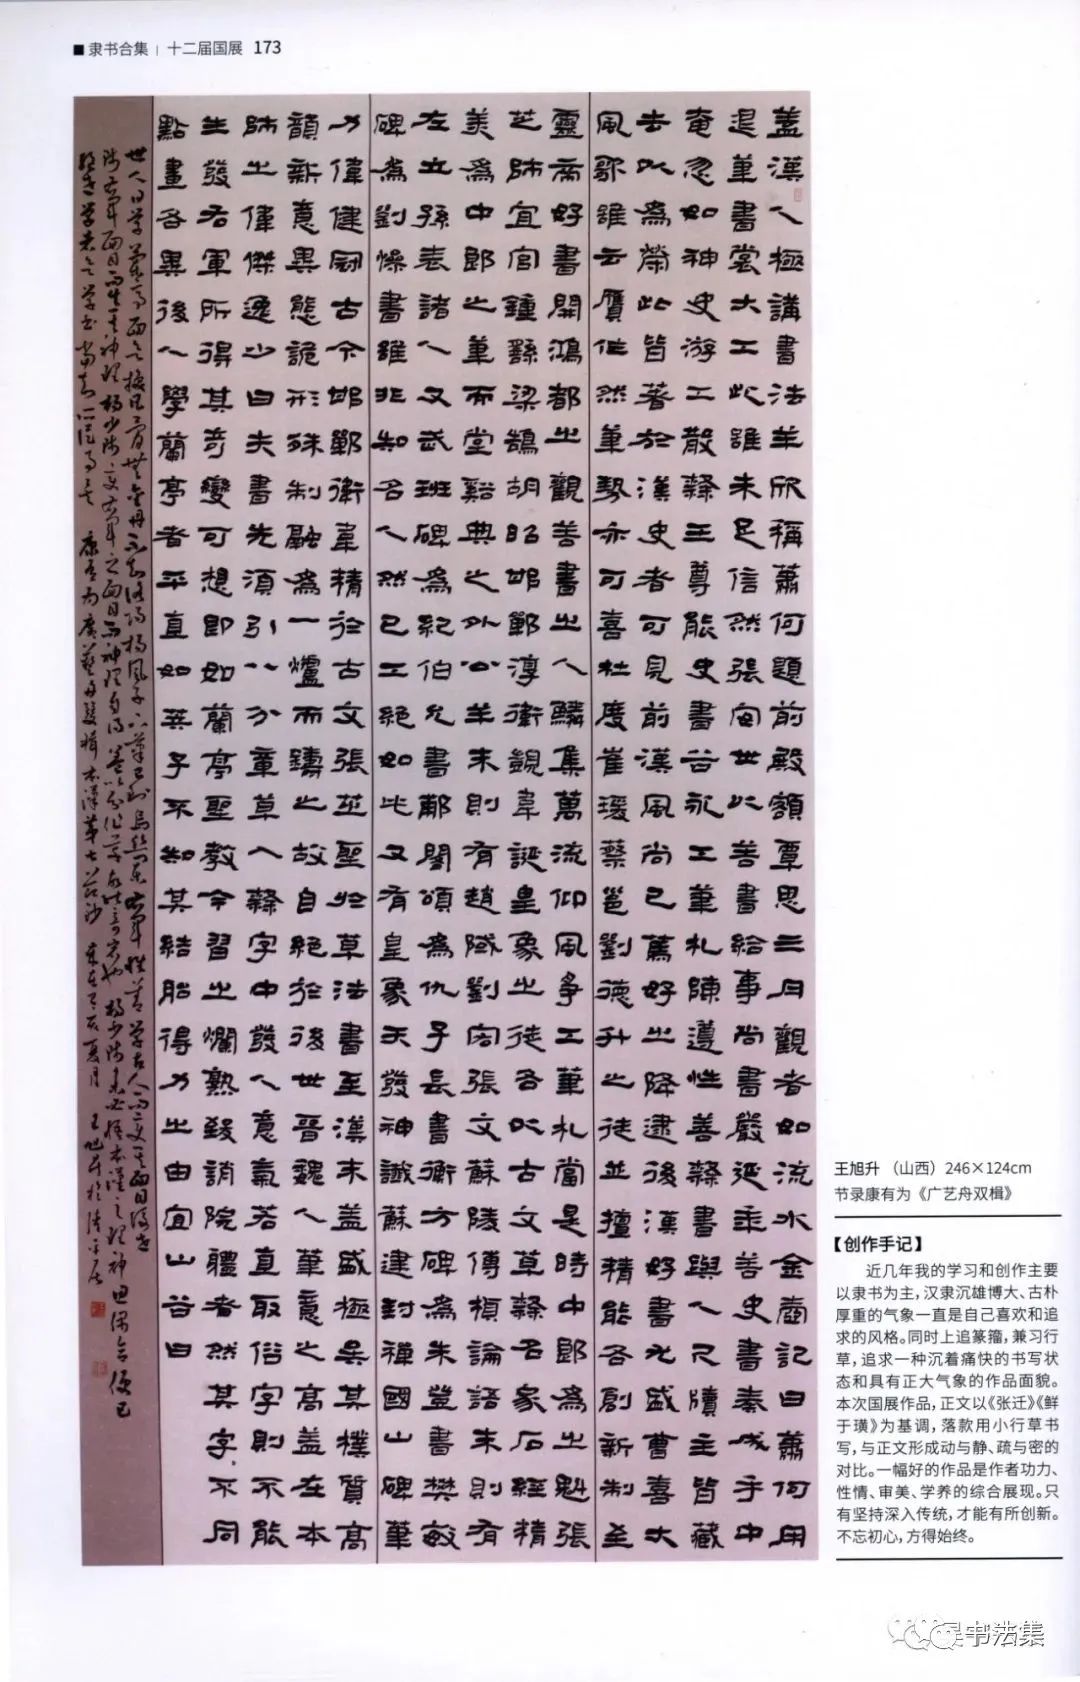 ■隶书合集 | 十二届国展 173
蓋漢人極講書法羊欣稱蕭何題前殿額覃思三月觀者如流水金壺記曰蕭何用
退筆書裳大工此雖未足信然張安世以善書給事尚書嚴延年善史書奏成手中
奄忽如神史游工散隸王尊能史書谷永工筆札陳遵性善隸書與人尺牘主皆藏
去以為榮此皆著於漢史者可見前漢風尚已篤好之降逮後漢好書尤盛曹喜大
風郭誰云贋作然筆勢亦可喜杜度崔瑗蔡邕劉德升之徒並擅精能各創新制至
靈帝好書開鴻都之觀善書之人鱗集萬流仰風爭工筆札當是時中郎為之魁張
芝師宜官鍾繇梁鵠胡昭邯鄲淳衛覬韋誕皇象之徒各以古文草隸名家石經精
美為中郎之筆而堂谿典之外公羊末則有趙陚劉宏張文蘇陵傅楨論語末則有
左立孫表諸人又武班碑為紀伯允書郙閣頌為仇子長書衡方碑為朱登書樊敏
碑為劉懆書雖非知名人然已工絕如此又有皇象天發神讖蘇建封禪國山碑筆
力偉健冠古今邯鄲衛韋精於古文張芝聖於草法書至漢末蓋盛極矣其樸質高
韻新意異態詭形殊制融為一爐而鑄之故自絕於後世晉魏人筆意之高蓋在本
師之偉傑逸少曰夫書先須引八分章草入隸字中發人意氣若直取俗字則不能
生發右軍所得其奇變可想即如蘭亭聖教今習之爛熟致誚院體者然其字不同
點畫各異後人學蘭亭者平直如算子不知其結胎得力之由宜山谷曰
世人日學蘭亭面欲換凡骨無金丹不知洛陽楊風子下筆已到烏絲闌右軍惟善學古人而變其面目後世
師右軍面目而失其神理楊少師變右軍之面目而神理自得蓋以分作草故能奇宕也楊少師未必悟本漢之理神思偶合便已
絕世學者欲學書當知所從事矣 康有為廣藝舟雙楫本漢第七節抄 歲在己亥夏月 王旭昇於
王旭升（山西）246×124cm
节录康有为《广艺舟双楫》
【创作手记】
近几年我的学习和创作主要
以隶书为主，汉隶沉雄博大、古朴
厚重的气象一直是自己喜欢和追
求的风格。同时上追篆籀，兼习行
草，追求一种沉着痛快的书写状
态和具有正大气象的作品面貌。
本次国展作品，正文以《张迁》《鲜
于璜》为基调，落款用小行草书
写，与正文形成动与静、疏与密的
对比。一幅好的作品是作者功力、
性情、审美、学养的综合展现。只
有坚持深入传统，才能有所创新。
不忘初心，方得始终。
书法集